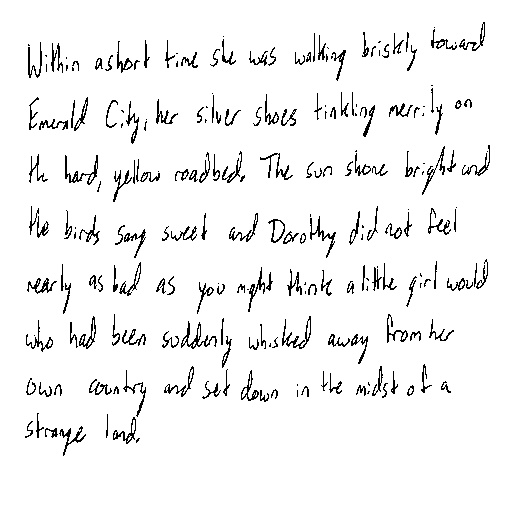 Within a short time she was walking briskly toward
Emerald City, her silver shoes tinkling merrily on
the hard, yellow roadbed. The sun shone bright and
the birds sang sweet and Dorothy did not feel
nearly as bad as you might think a little girl would
who had been suddenly whisked away from her
own country and set down in the midst of a
strange land.